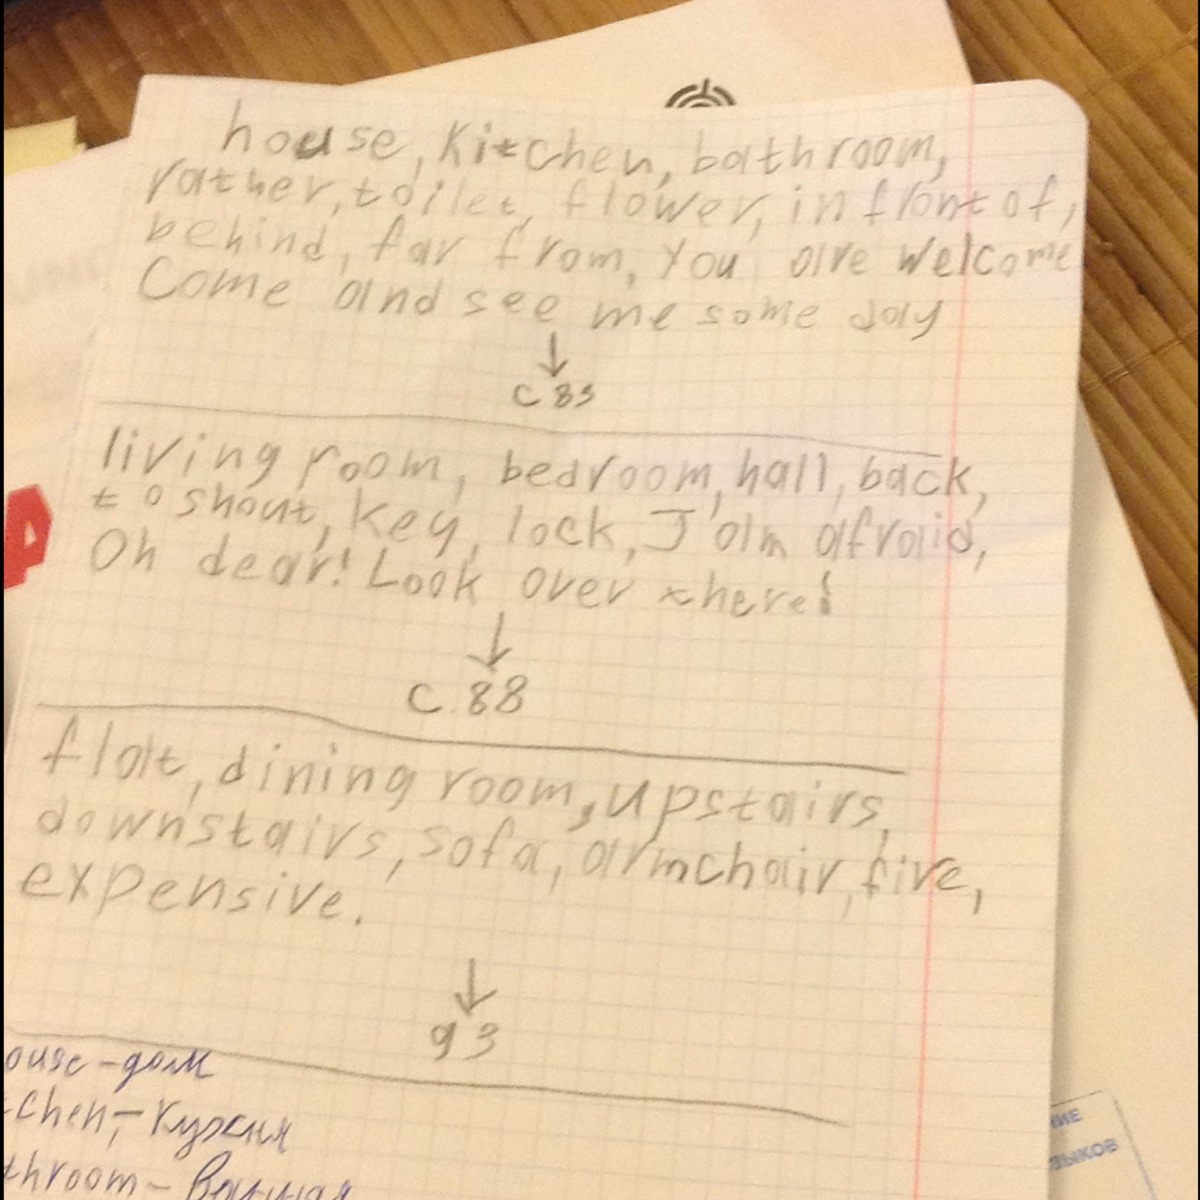 house, Kitchen, bathroom,
rather, toilet, flower, in front of,
behind, far from, you are welcome
Come and see me some day
c 83
living room, bedroom, hall, back,
to shout, key, lock, I'am afraid,
Oh dear! Look over there!
C. 88
flat, dining room, upstairs,
downstairs, sofa, armchair, fire,
expensive.
93
ouse - дом
chen, - Кухня
throom - Ванная
НИЕ
ЗЫКОВ